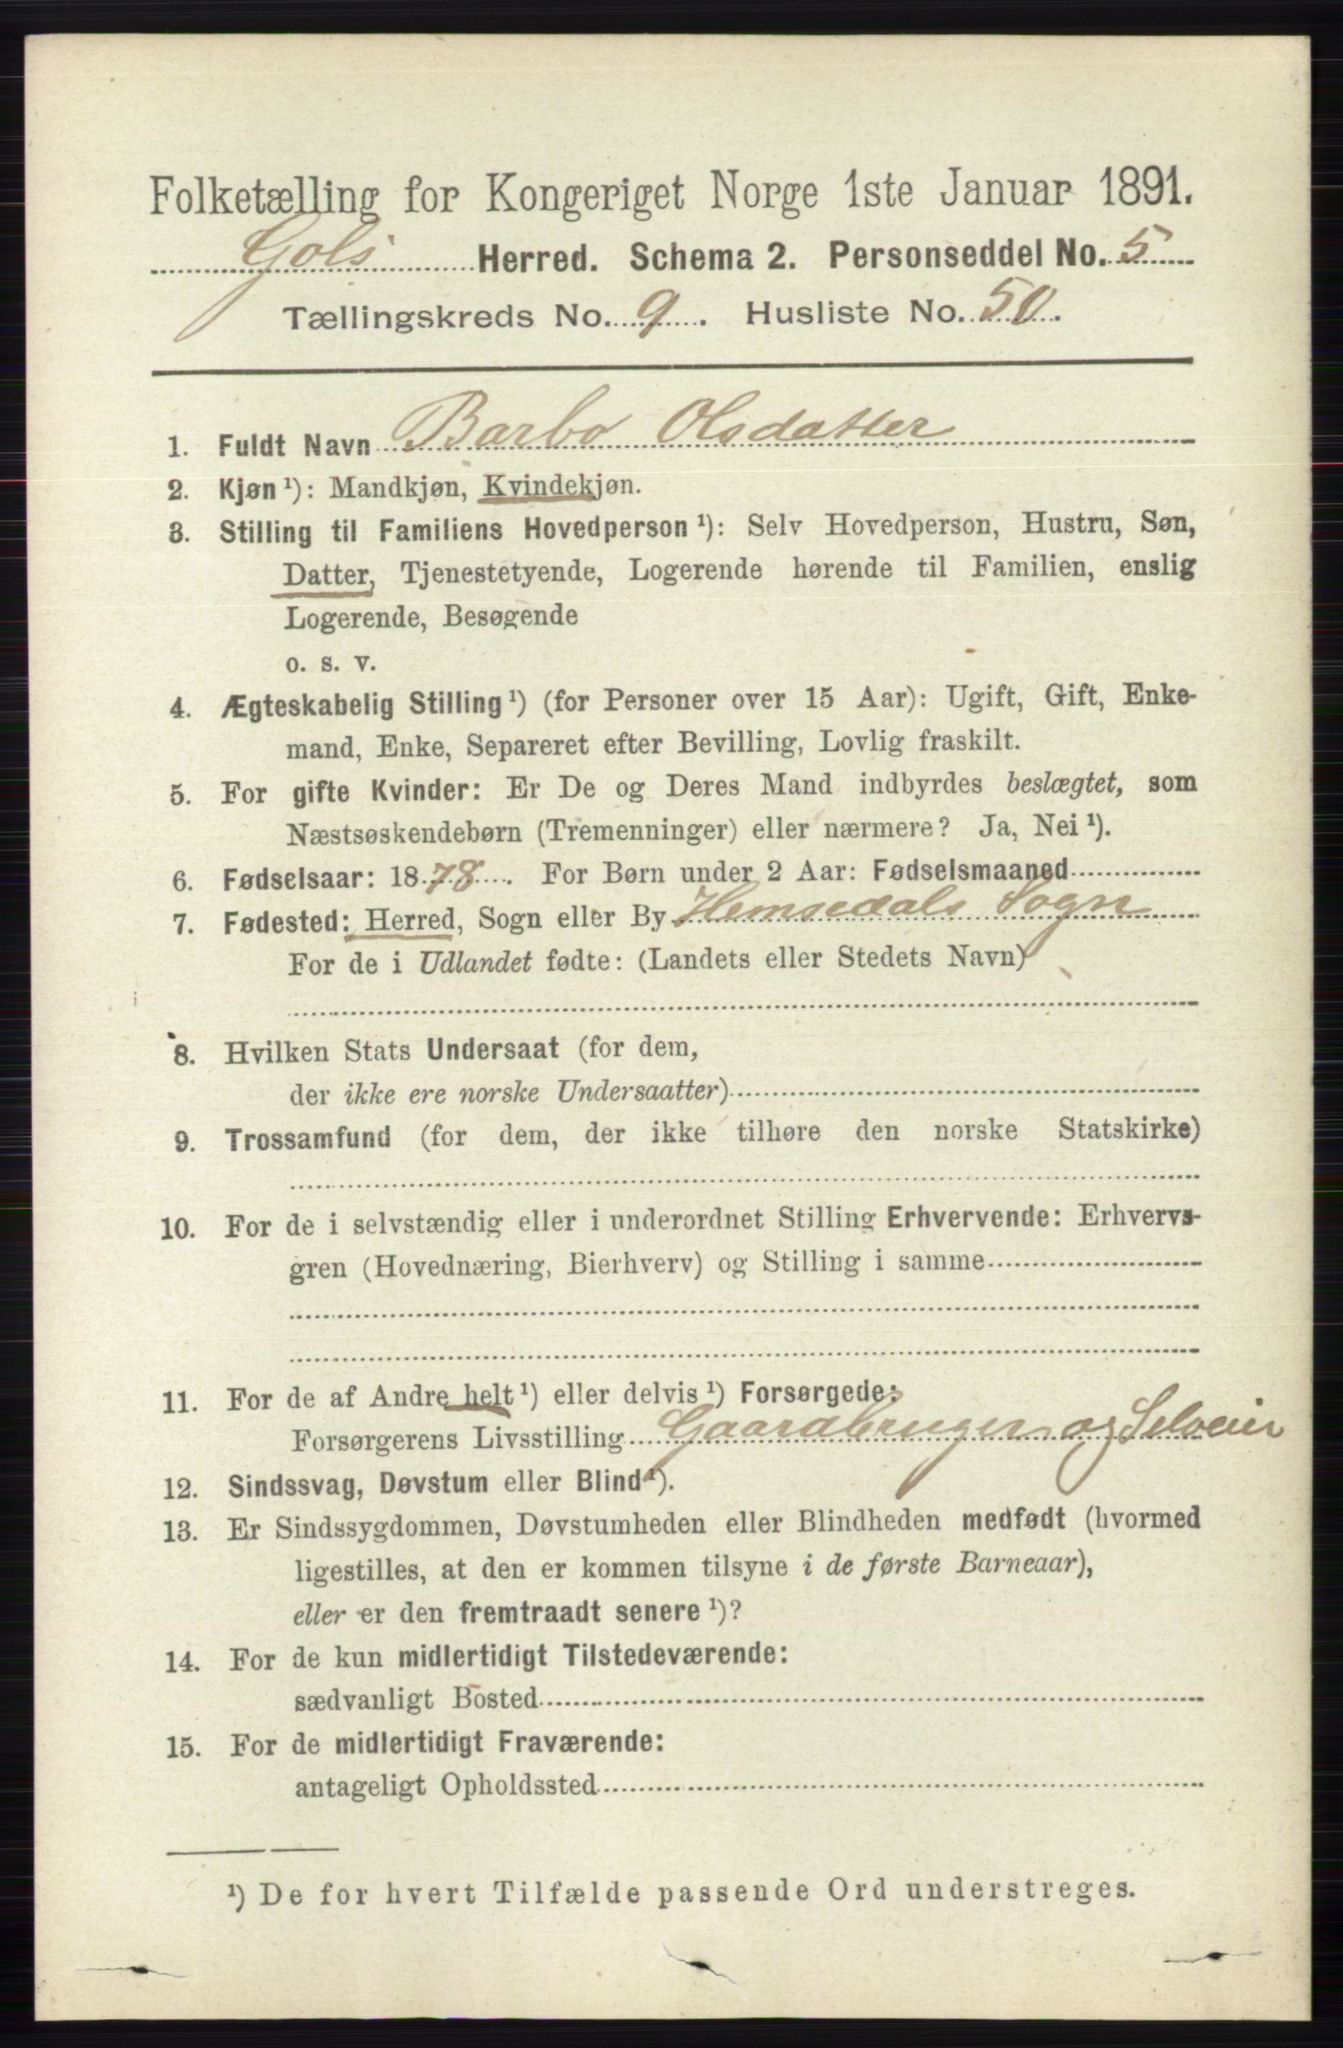 Folketælling for Kongeriget Norge 1ste Januar 1891.
Gols Herred. Schema 2. Personseddel No. 5
Tællingskreds No. 9. Husliste No. 50.
1. Fuldt Navn Barbo Olsdatter
2. Kjøn ¹): Mandkjøn, Kvindekjøn.
3. Stilling til Familiens Hovedperson ¹): Selv Hovedperson, Hustru, Søn,
Datter, Tjenestetyende, Logerende hørende til Familien, enslig
Logerende, Besøgende
o. s. v.
4. Ægteskabelig Stilling ¹) (for Personer over 15 Aar): Ugift, Gift, Enke-
mand, Enke, Separeret efter Bevilling, Lovlig fraskilt.
5. For gifte Kvinder: Er De og Deres Mand indbyrdes beslægtet, som
Næstsøskendebørn (Tremenninger) eller nærmere? Ja, Nei ¹).
6. Fødselsaar: 1878. For Børn under 2 Aar: Fødselsmaaned
7. Fødested: Herred, Sogn eller By Hemsedals Sogn
For de i Udlandet fødte: (Landets eller Stedets Navn)
8. Hvilken Stats Undersaat (for dem,
der ikke ere norske Undersaatter)
9. Trossamfund (for dem, der ikke tilhøre den norske Statskirke)
10. For de i selvstændig eller i underordnet Stilling Erhvervende: Erhvervs-
gren (Hovednæring, Bierhverv) og Stilling i samme
11. For de af Andre helt ¹) eller delvis ¹) Forsørgede:
Forsørgerens Livsstilling Gaardbruger og Selveier
12. Sindssvag, Døvstum eller Blind ¹).
13. Er Sindssygdommen, Døvstumheden eller Blindheden medfødt (hvormed
ligestilles, at den er kommen tilsyne i de første Barneaar),
eller er den fremtraadt senere ¹)?
14. For de kun midlertidigt Tilstedeværende:
sædvanligt Bosted
15. For de midlertidigt Fraværende:
antageligt Opholdssted
¹) De for hvert Tilfælde passende Ord understreges.